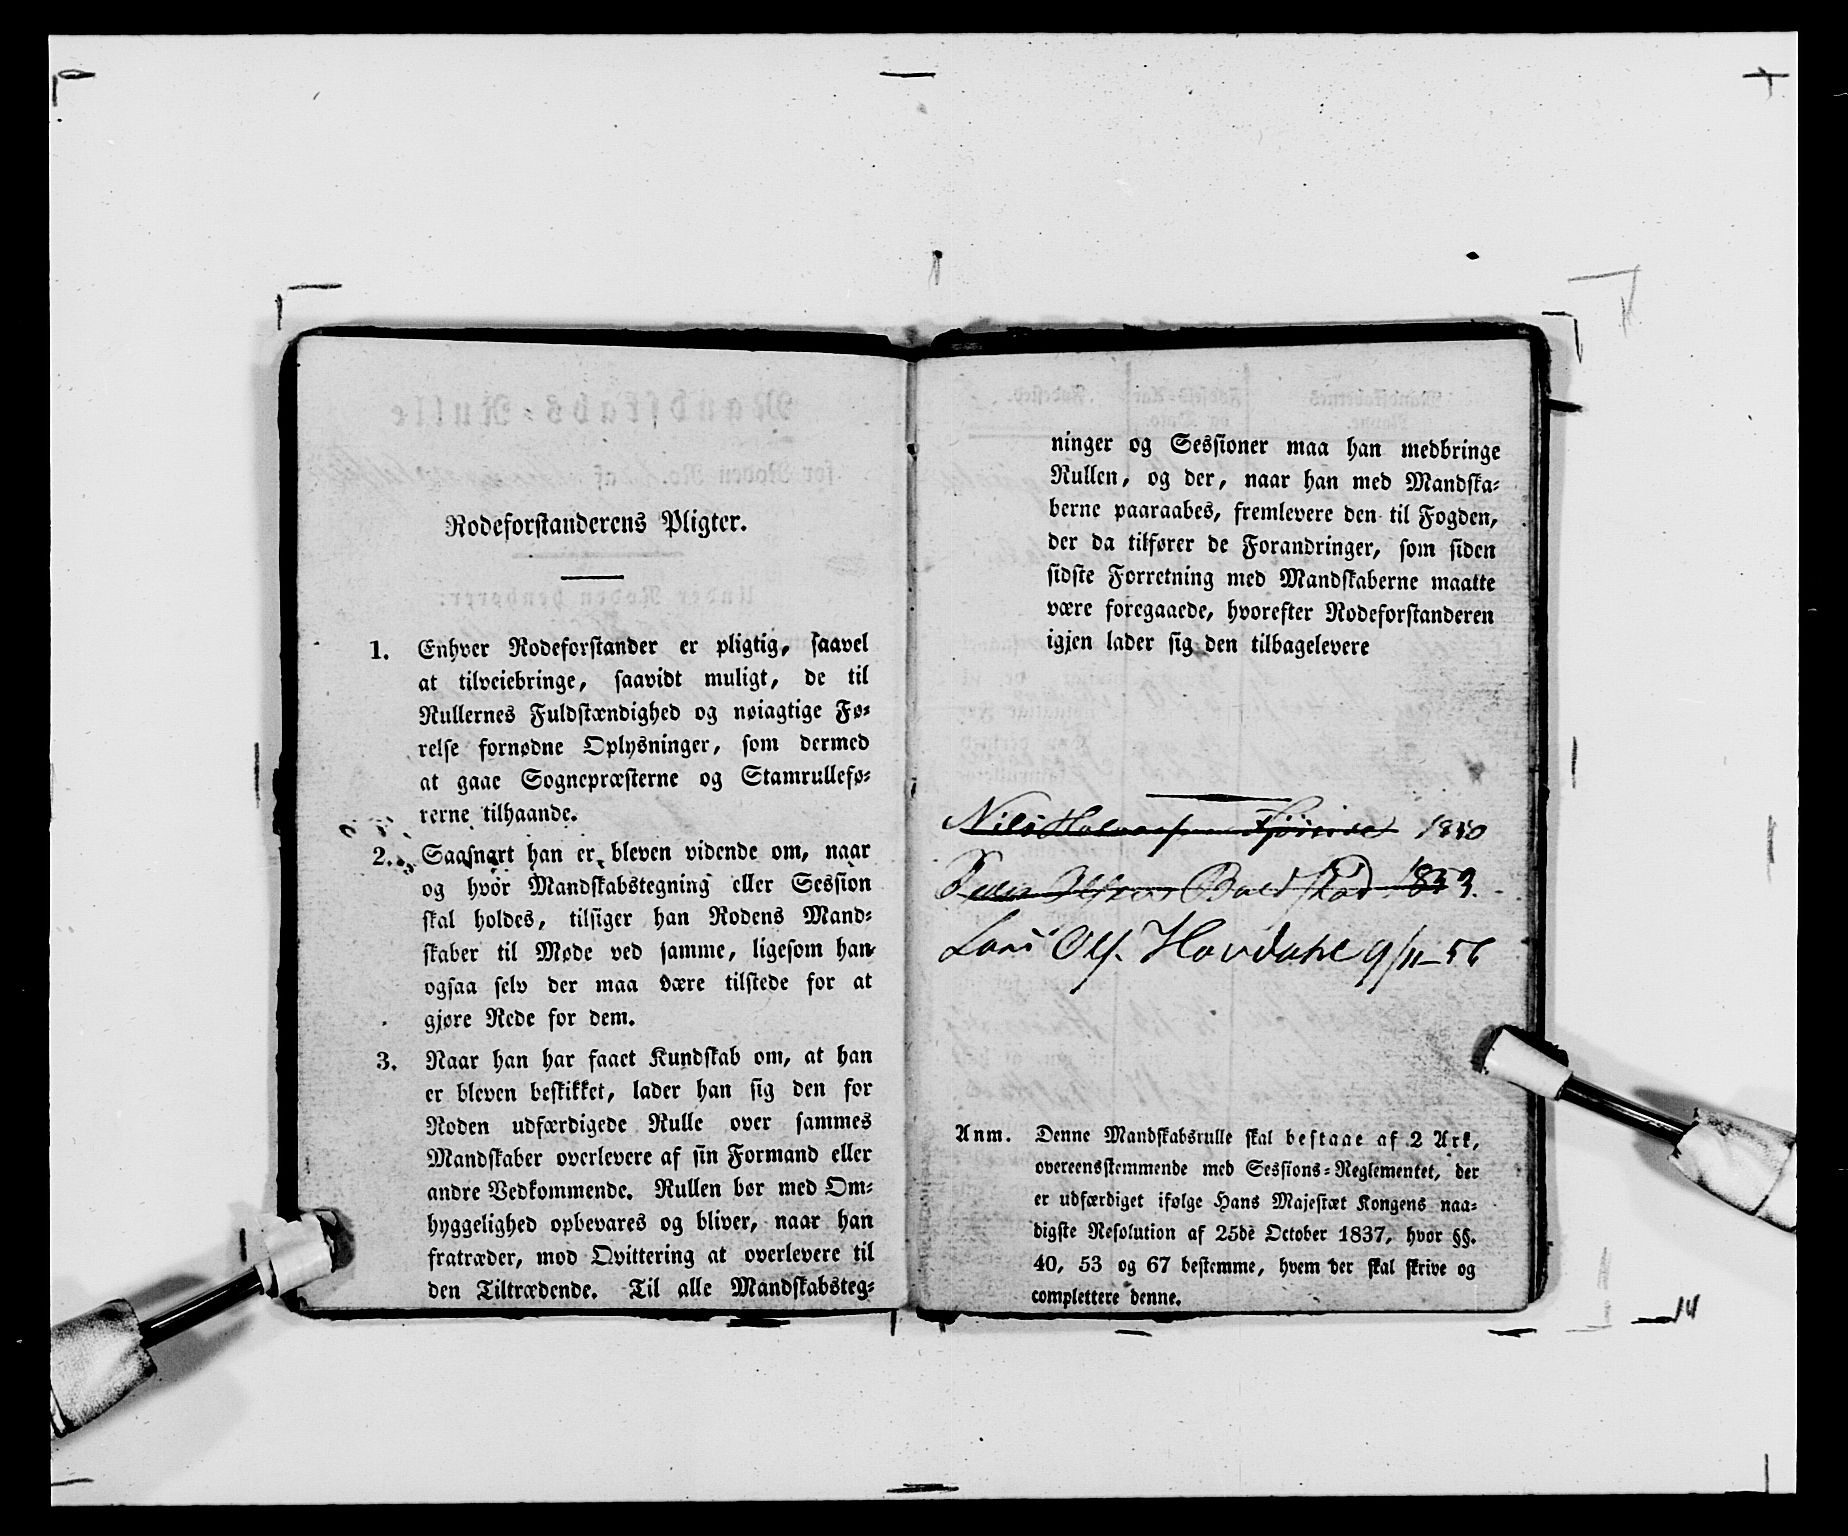 Rodeforstanderens Pligter.
1. Enhver Rodeforstander er pligtig, saavel
at tilveiebringe, saavidt muligt, de til
Rullernes Fuldstændighed og nøiagtige Fø-
relse fornødne Oplysninger, som dermed
at gaae Sognepræsterne og Stamrullefø-
rerne tilhaande.
2. Saasnart han er bleven vidende om, naar
og hvor Mandskabstegning eller Session
skal holdes, tilsiger han Rodens Mand-
skaber til Møde ved samme, ligesom han
ogsaa selv der maa være tilstede for at
gjøre Rede for dem.
3. Naar han har faaet Kundskab om, at han
er bleven beskikket, lader han sig den for
Roden udfærdigede Rulle over sammes
Mandskaber overlevere af sin Formand eller
andre Vedkommende. Rullen bør med Om-
hyggelighed opbevares og bliver, naar han
fratræder, mod Qvittering at overlevere til
den Tiltrædende. Til alle Mandskabsteg-
ninger og Sessioner maa han medbringe
Rullen, og der, naar han med Mandska-
berne paaraabes, fremlevere den til Fogden,
der da tilfører de Forandringer, som siden
sidste Forretning med Mandskaberne maatte
være foregaaede, hvorefter Rodeforstanderen
igjen lader sig den tilbagelevere
Nils Halvorsen 1850
Peder Boldstad 1853.
Lars Ols. Hovdahl 9/11-56
Anm. Denne Mandskabsrulle skal bestaae af 2 Ark,
overeensstemmende med Sessions-Reglementet, der
er udfærdiget ifølge Hans Majestæt Kongens naa-
digste Resolution af 25de October 1837, hvor §§.
40, 53 og 67 bestemme, hvem der skal skrive og
complettere denne.
14